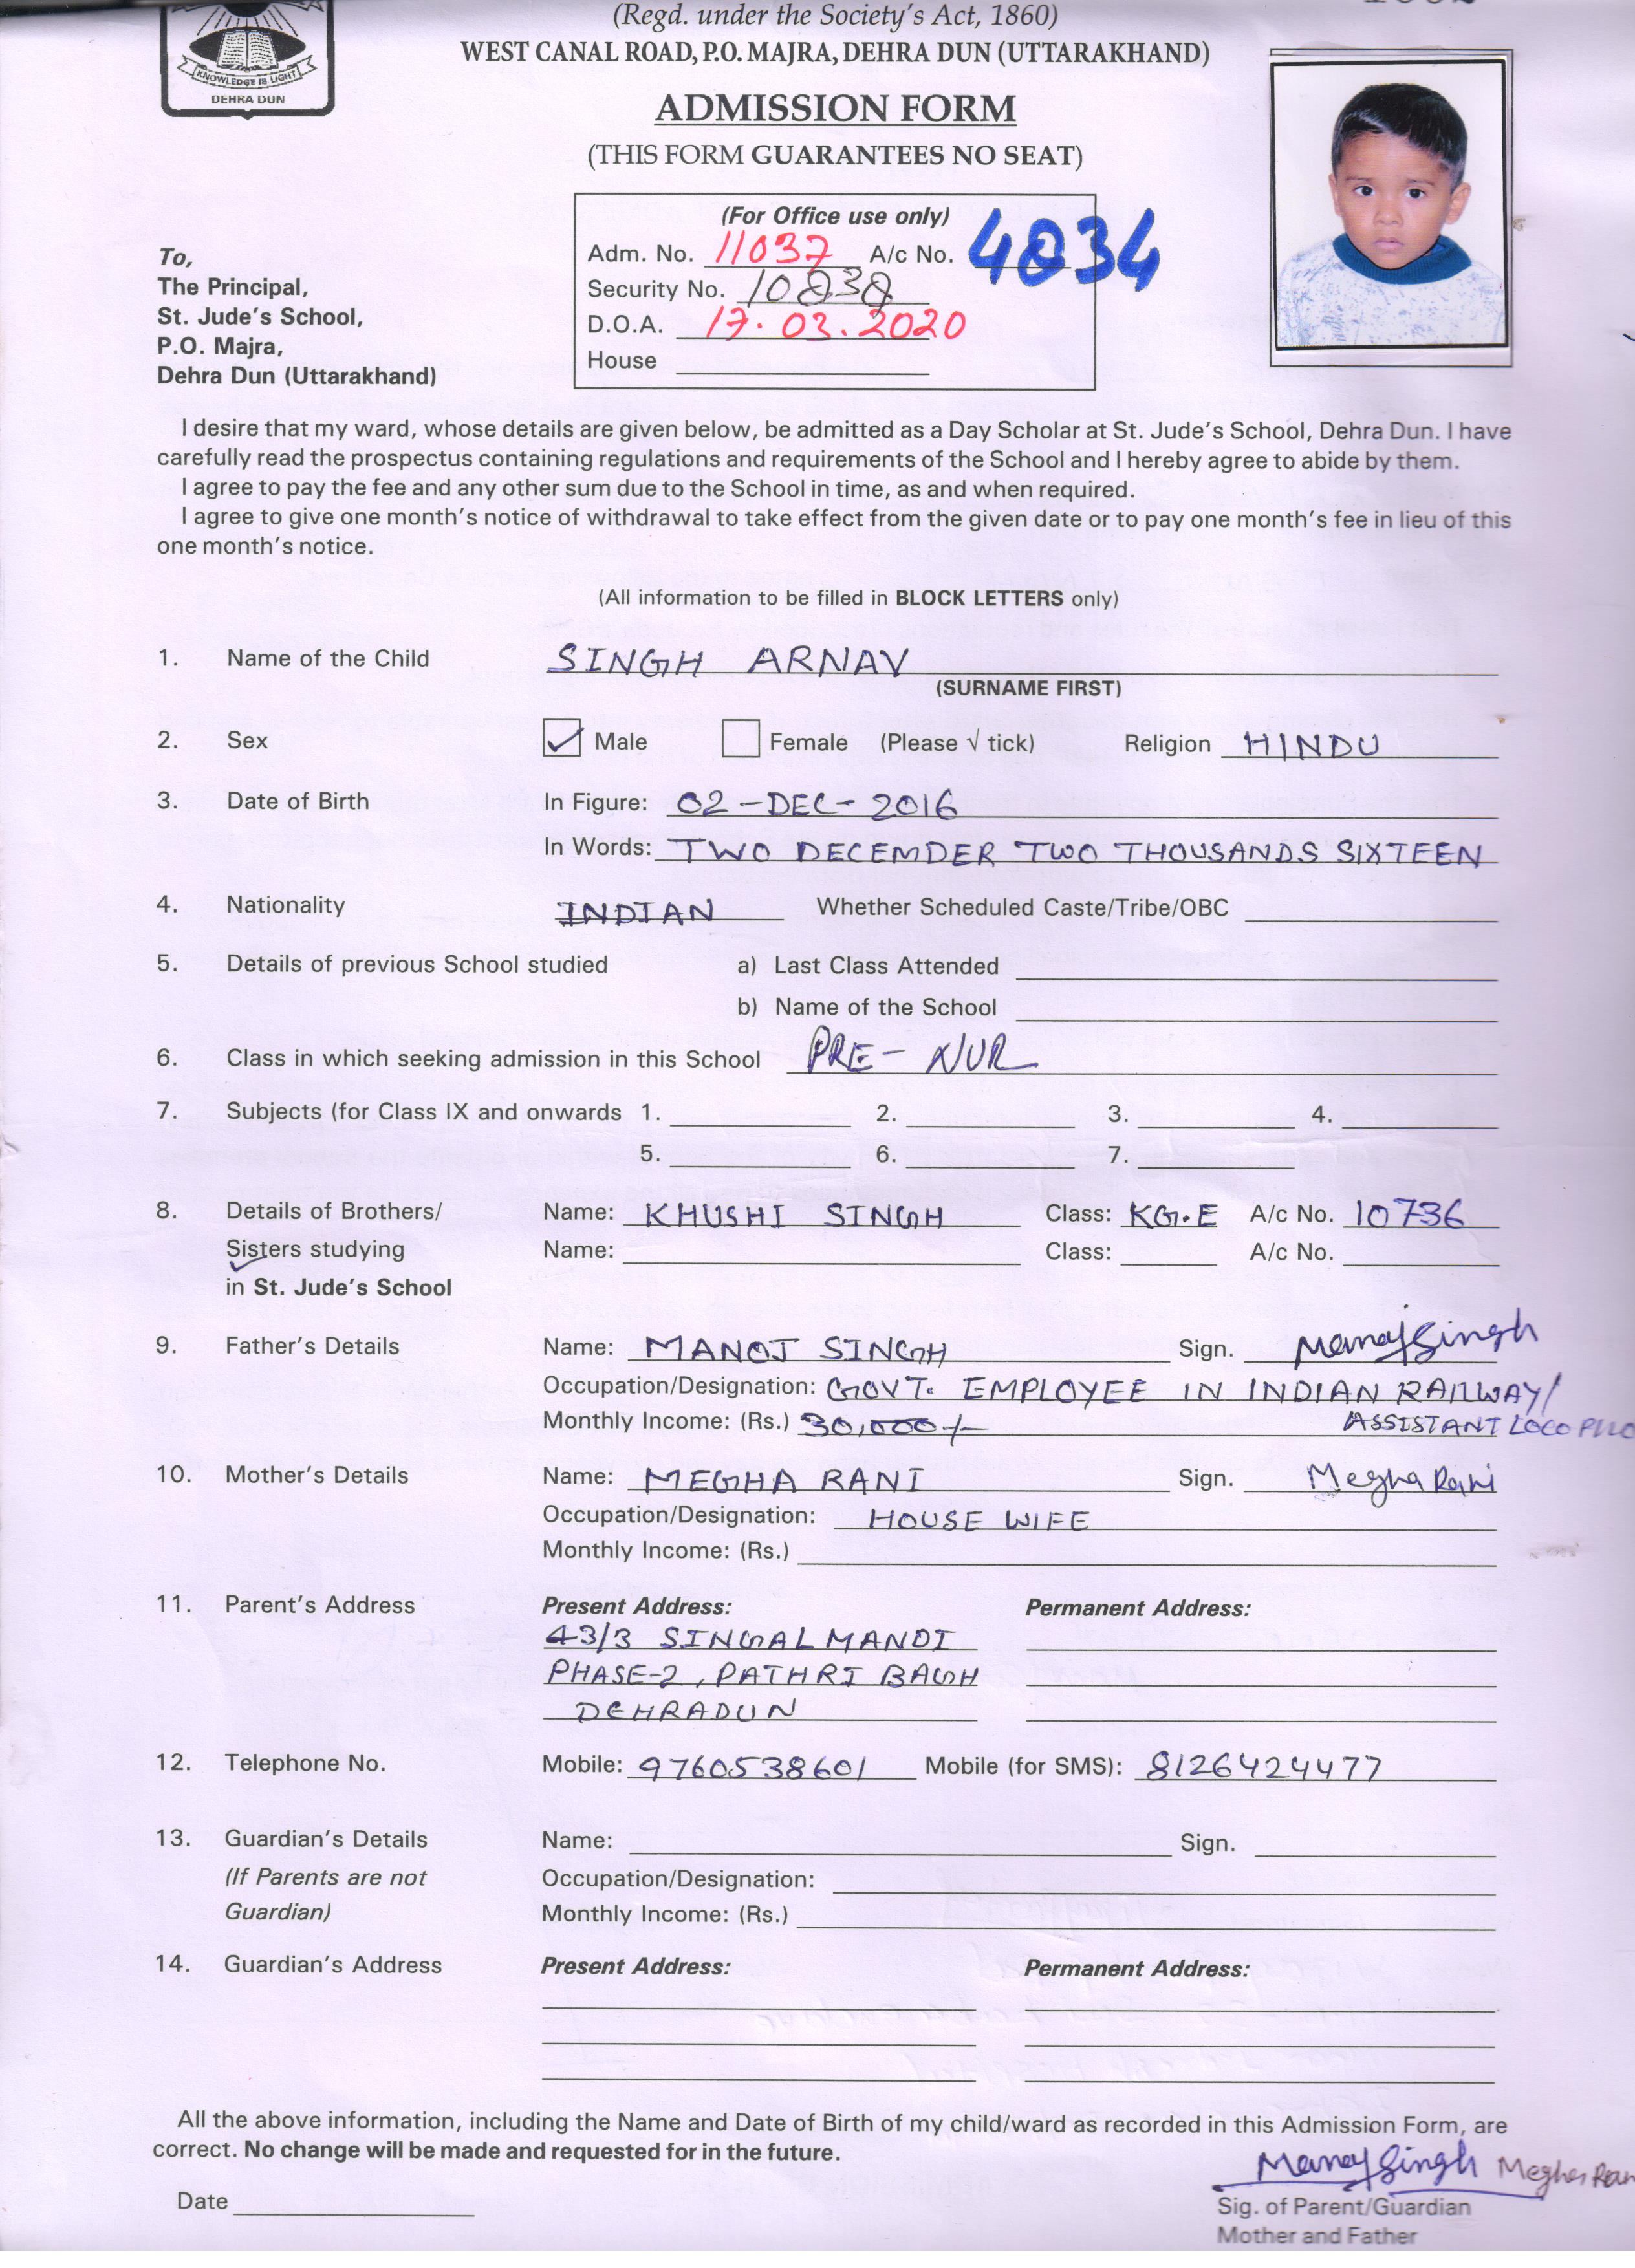 (Regd. under the Society's Act, 1860)
WEST CANAL ROAD, P.O. MAJRA, DEHRA DUN (UTTARAKHAND)
KNOWLEDGE IS LIGHT
DEHRA DUN
ADMISSION FORM
(THIS FORM GUARANTEES NO SEAT)
(For Office use only)
Adm. No. 11037 A/c No. 4834
Security No. 10838
D.O.A. 17.03.2020
House
To,
The Principal,
St. Jude's School,
P.O. Majra,
Dehra Dun (Uttarakhand)
I desire that my ward, whose details are given below, be admitted as a Day Scholar at St. Jude's School, Dehra Dun. I have
carefully read the prospectus containing regulations and requirements of the School and I hereby agree to abide by them.
I agree to pay the fee and any other sum due to the School in time, as and when required.
I agree to give one month's notice of withdrawal to take effect from the given date or to pay one month's fee in lieu of this
one month's notice.
(All information to be filled in BLOCK LETTERS only)
1. Name of the Child SINGH ARNAV
(SURNAME FIRST)
2. Sex ✓ Male Female (Please √ tick) Religion HINDU
3. Date of Birth In Figure: 02-DEC-2016
In Words: TWO DECEMDER TWO THOUSANDS SIXTEEN
4. Nationality INDIAN Whether Scheduled Caste/Tribe/OBC
5. Details of previous School studied a) Last Class Attended
b) Name of the School
6. Class in which seeking admission in this School PRE- NUR
7. Subjects (for Class IX and onwards 1. 2. 3. 4.
5. 6. 7.
8. Details of Brothers/ Name: KHUSHI SINGH Class: KG.E A/c No. 10736
Sisters studying Name: Class: A/c No.
in St. Jude's School
9. Father's Details Name: MANOJ SINGH Sign. Manoj Singh
Occupation/Designation: GOVT. EMPLOYEE IN INDIAN RAILWAY/
Monthly Income: (Rs.) 30,000/- ASSISTANT LOCO
10. Mother's Details Name: MEGHA RANI Sign. Megha Rani
Occupation/Designation: HOUSE WIFE
Monthly Income: (Rs.)
11. Parent's Address Present Address: Permanent Address:
43/3 SINGAL MANDI
PHASE-2, PATHRI BAGH
DEHRADUN
12. Telephone No. Mobile: 9760538601 Mobile (for SMS): 8126424477
13. Guardian's Details Name: Sign.
(If Parents are not Occupation/Designation:
Guardian) Monthly Income: (Rs.)
14. Guardian's Address Present Address: Permanent Address:
All the above information, including the Name and Date of Birth of my child/ward as recorded in this Admission Form, are
correct. No change will be made and requested for in the future.
Manoj Singh Megha
Date
Sig. of Parent/Guardian
Mother and Father